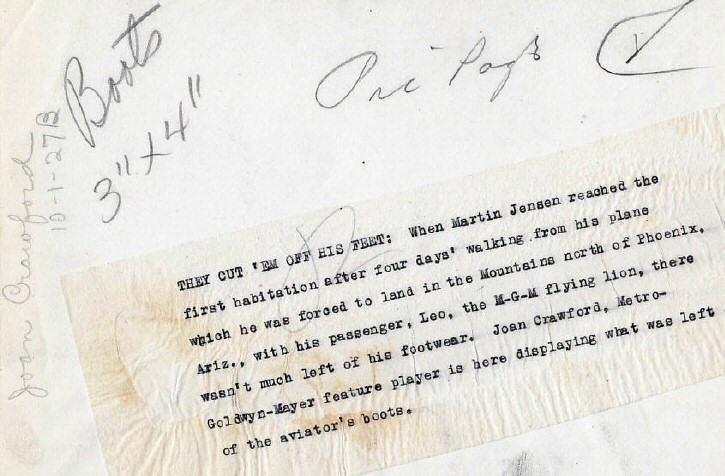 Boots
3" x 4"
Joan Crawford
10-1-27
THEY CUT 'EM OFF HIS FEET: When Martin Jensen reached the
first habitation after four days' walking from his plane
which he was forced to land in the Mountains north of Phoenix,
Ariz., with his passenger, Leo, the M-G-M flying lion, there
wasn't much left of his footwear. Joan Crawford, Metro-
Goldwyn-Mayer feature player is here displaying what was left
of the aviator's boots.